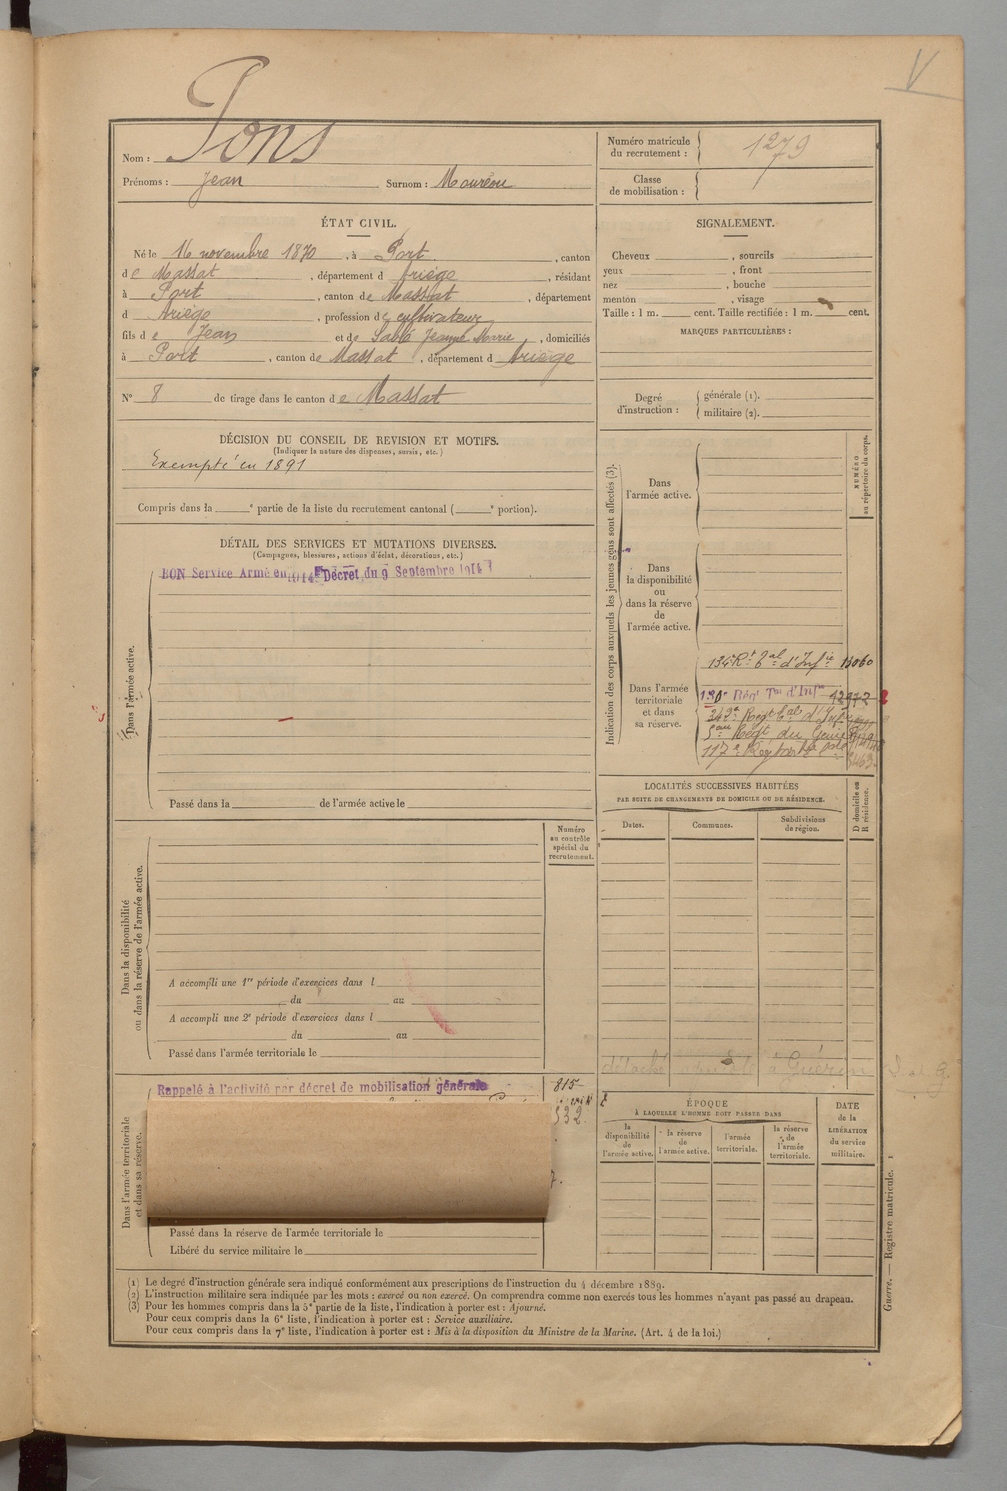 V
Nom : Pons
Prénoms : Jean Surnom : Mouréou
Numéro matricule du recrutement : 1279
Classe de mobilisation :
ÉTAT CIVIL.
Né le 16 novembre 1870, à Port, canton
de Massat, département d Ariège, résidant
à Port, canton de Massat, département
d Ariège, profession de cultivateur
fils de Jean et de Jeanne Marie, domiciliés
à Port, canton de Massat, département d Ariège
N° 8 de tirage dans le canton de Massat
SIGNALEMENT.
Cheveux , sourcils
yeux , front
nez , bouche
menton , visage
Taille : 1 m. cent. Taille rectifiée : 1 m. cent.
MARQUES PARTICULIÈRES :
Degré d'instruction : générale (1).
militaire (2).
DÉCISION DU CONSEIL DE REVISION ET MOTIFS.
(Indiquer la nature des dispenses, sursis, etc.)
Exempté en 1891
Compris dans la e partie de la liste du recrutement cantonal ( e portion).
DÉTAIL DES SERVICES ET MUTATIONS DIVERSES.
(Campagnes, blessures, actions d'éclat, décorations, etc.)
BON Service Armé en 1914 Décret du 9 Septembre 1914
Dans l'armée active.
Passé dans la de l'armée active le
Indication des corps auxquels les jeunes reçus sont affectés (3).
NUMÉRO au répertoire du corps.
Dans l'armée active.
Dans la disponibilité ou dans la réserve de l'armée active.
Dans l'armée territoriale et dans sa réserve.
134e Rt Tal d'Infie 15060
130e Régt Tal d'Infie 12972
5me Regt du Génie
117e
LOCALITÉS SUCCESSIVES HABITÉES
PAR SUITE DE CHANGEMENTS DE DOMICILE OU DE RÉSIDENCE.
Dates. Communes. Subdivisions de région. D domicile ou R résidence.
Numéro au contrôle spécial du recrutement.
Dans la disponibilité ou dans la réserve de l'armée active.
A accompli une 1re période d'exercices dans l
du au
A accompli une 2e période d'exercices dans l
du au
Passé dans l'armée territoriale le
détaché à Guérin
Dans l'armée territoriale et dans sa réserve.
Rappelé à l'activité par décret de mobilisation générale
815
532
Passé dans la réserve de l'armée territoriale le
Libéré du service militaire le
ÉPOQUE
À LAQUELLE L'HOMME DOIT PASSER DANS
la disponibilité de l'armée active.
la réserve de l'armée active.
l'armée territoriale.
la réserve de l'armée territoriale.
DATE de la LIBÉRATION du service militaire.
Guerre. — Registre matricule. 1
(1) Le degré d'instruction générale sera indiqué conformément aux prescriptions de l'instruction du 4 décembre 1889.
(2) L'instruction militaire sera indiquée par les mots : exercé ou non exercé. On comprendra comme non exercés tous les hommes n'ayant pas passé au drapeau.
(3) Pour les hommes compris dans la 5e partie de la liste, l'indication à porter est : Ajourné.
Pour ceux compris dans la 6e liste, l'indication à porter est : Service auxiliaire.
Pour ceux compris dans la 7e liste, l'indication à porter est : Mis à la disposition du Ministre de la Marine. (Art. 4 de la loi.)